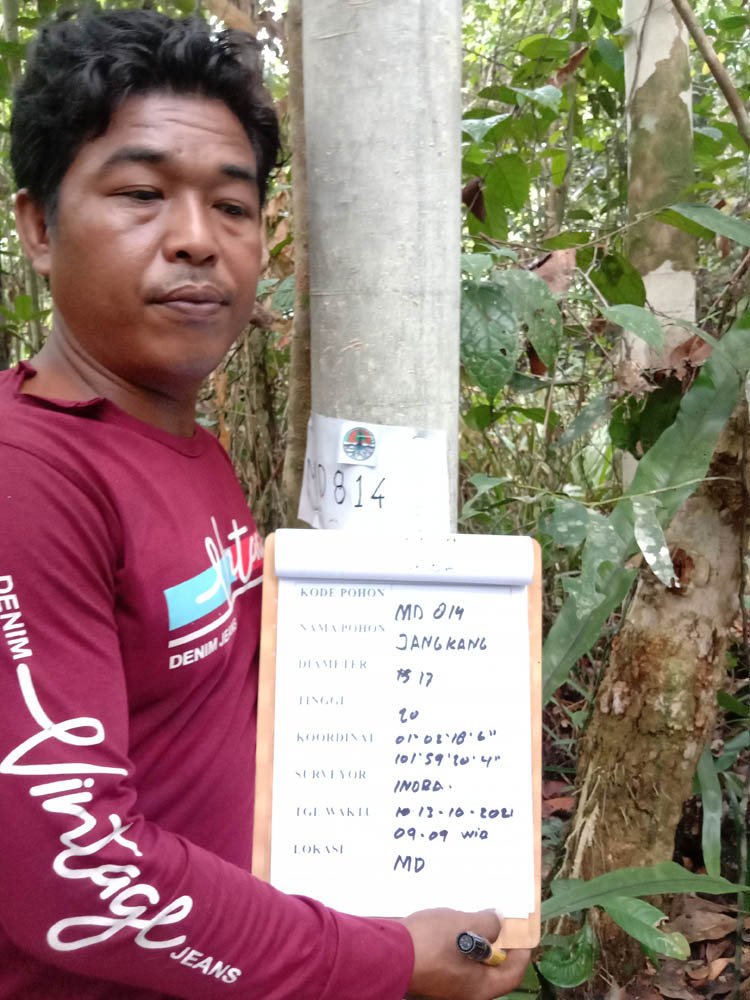 MD 814
KODE POHON MD 814
NAMA POHON JANGKANG
DIAMETER 17
TINGGI 20
KOORDINAT 01°02'18.6"
101°59'20.4"
SURVEYOR INDRA.
TGL WAKTU 13-10-2021
09.09 WIB
LOKASI MD
Vintage
DENIM JEANS
DENIM
Vintage
JEANS